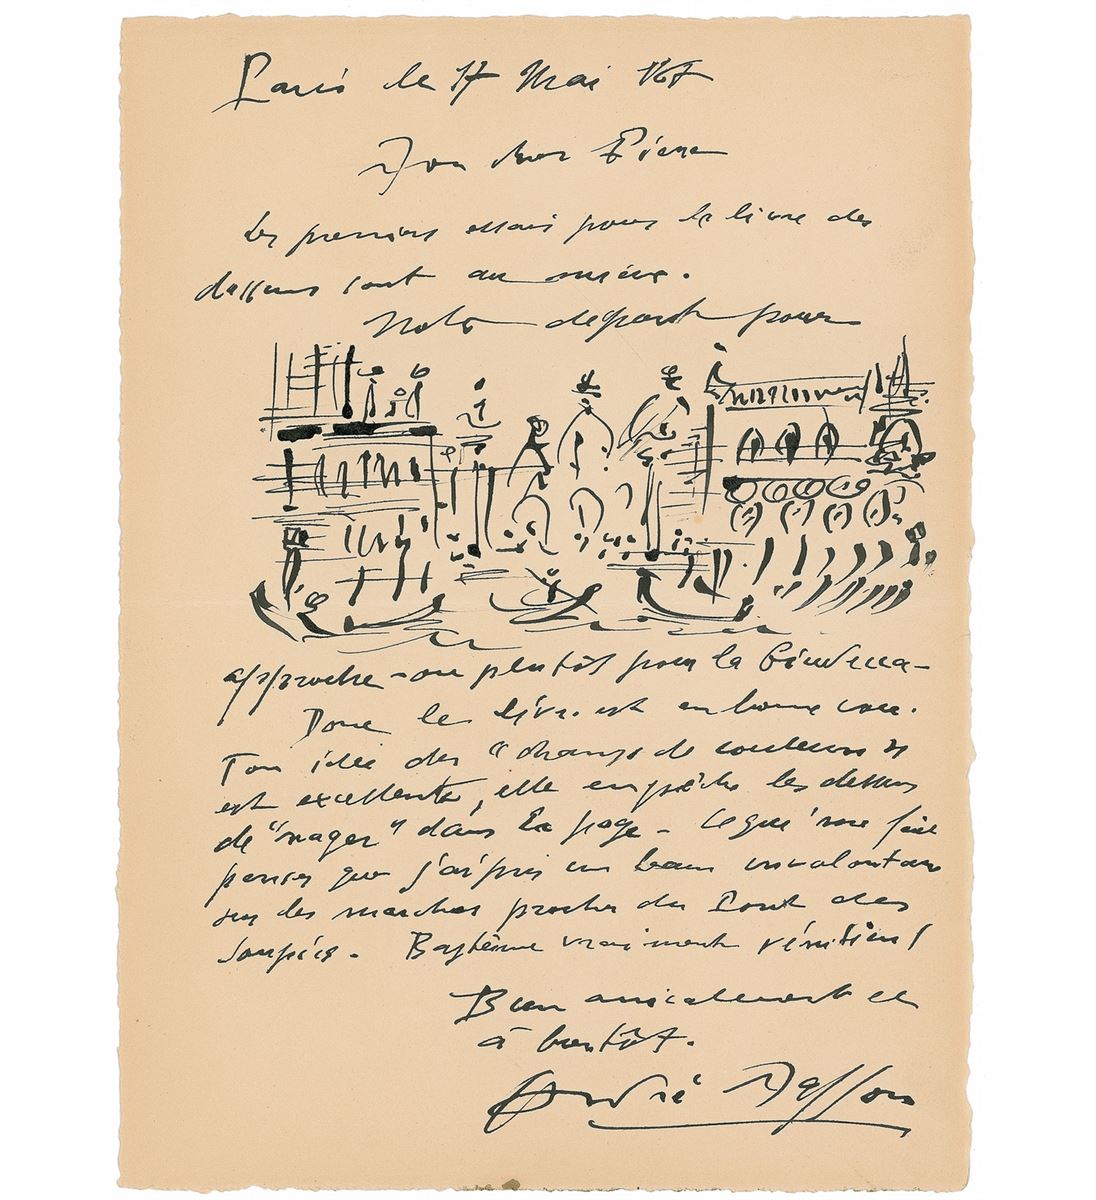 Paris le 17 Mai 167
Mon cher Pierre
Les premiers essais pour le livre des
dessins sont au mieux.
Notre départ pour
approche - ou plutôt pour la Giudecca -
Donc le livre est en bonne voie.
Ton idée des "champs de couleurs"
est excellente, elle empêche les dessins
de "nager" dans la page - Ce qui me fait
penser que j'ai pris un bain involontaire
sur les marches proches du Pont des
Soupirs - Baptême vraiment vénitien !
Bien amicalement et
à bientôt.
André Masson